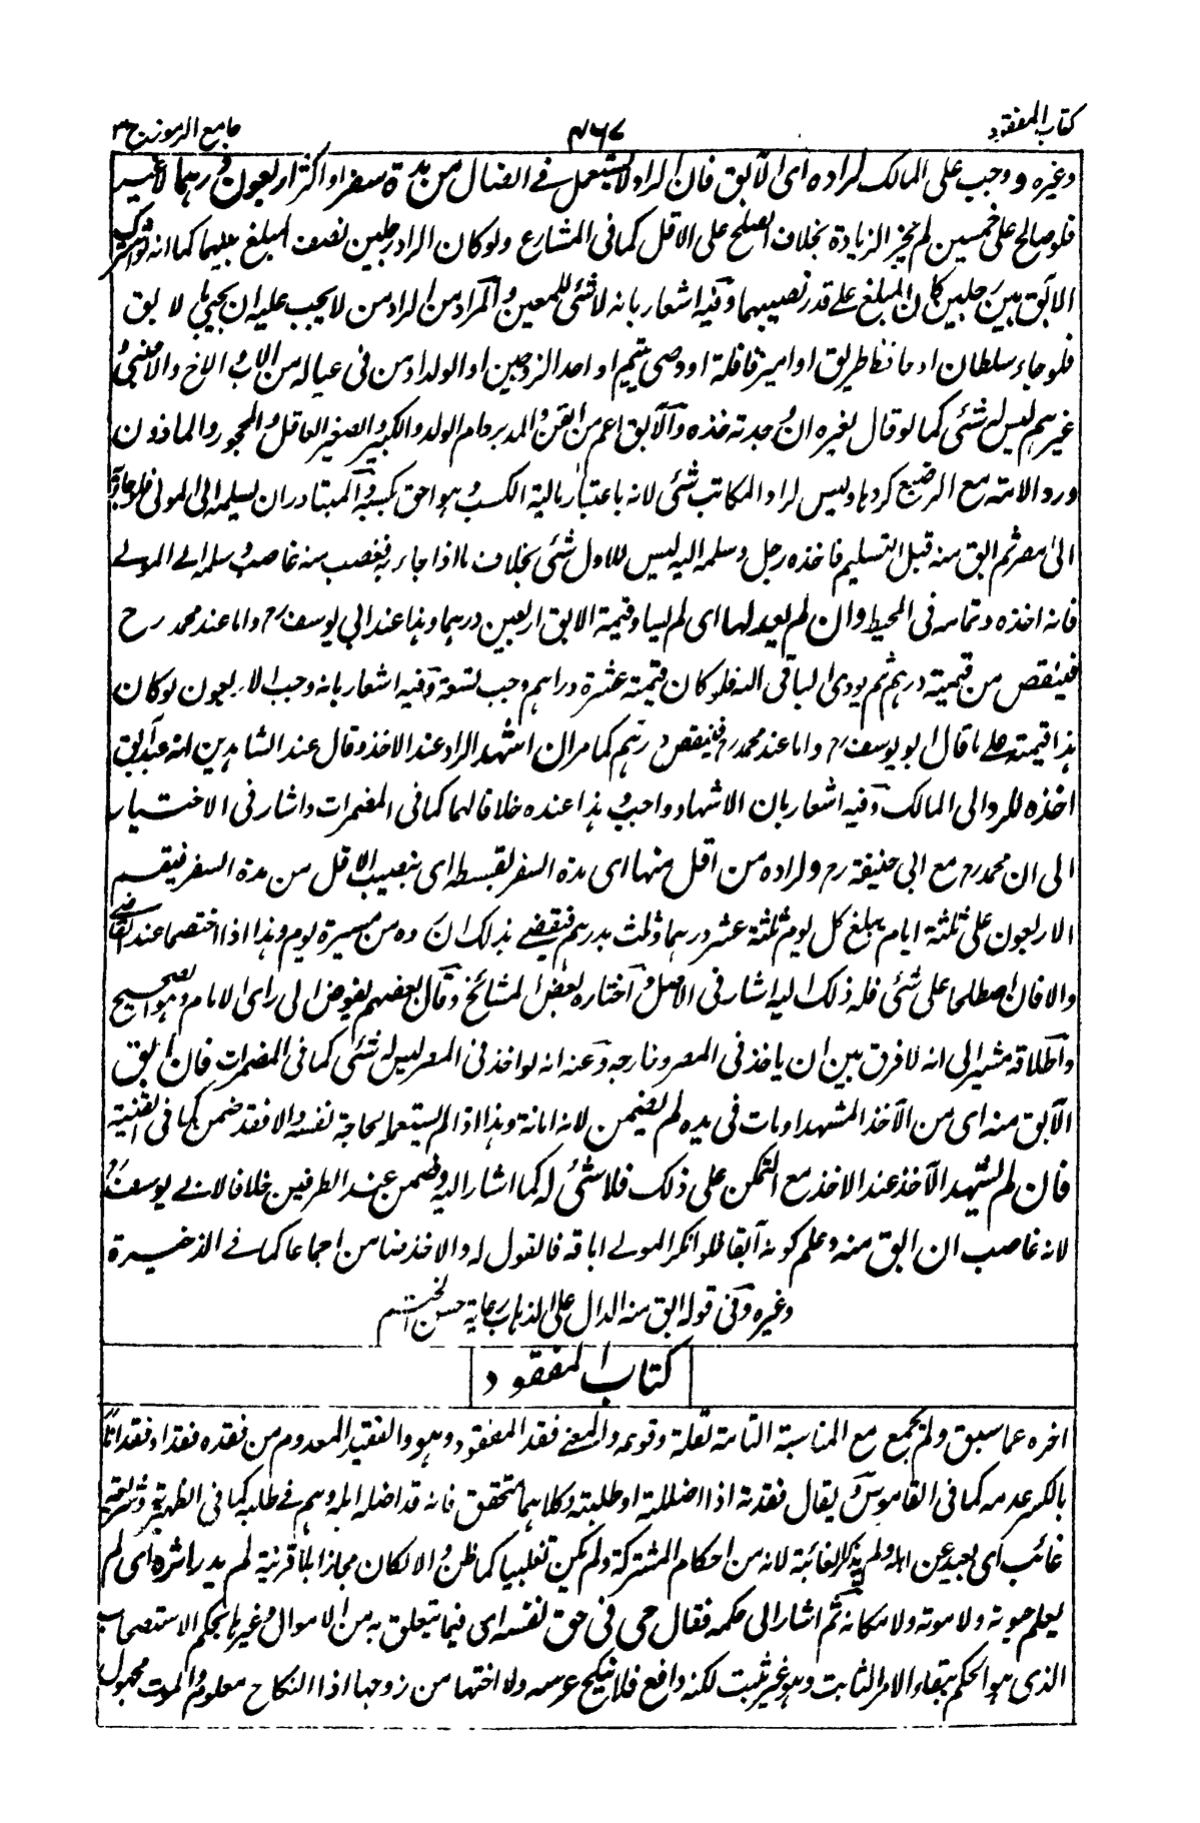 كتاب المفقود
٤٦٧
جامع الرموز ج ٣
وغيره و وجب على المالك لراده اى الآبق فان الراد لا يستعمل فى الضال من مدة سفر او اكثر اربعون درهما لا غير
فلو صالح على خمسين لم يجز الزيادة بخلاف الصلح على الاقل كما فى المشارع ولو كان الراد رجلين نصف المبلغ بينهما كما انه لو اشترك
الآبق بين رجلين كان المبلغ على قدر نصيبهما وفيه اشعار بانه لا شئ للمعين والمراد من الراد من لا يجب عليه ان يجئ بالابق
فلو جاء سلطان او حافظ طريق او امير قافلة او وصى يتيم او احد الزوجين او الولد او من فى عياله من الاب او الاخ والاجنبى
غيرهم ليس له شئ كما لو قال لغيره ان وجدته خذه والآبق اعم من القن والمدبر وام الولد والكبير والصغير العاقل والمحجور والماذون
ورد الامة مع الرضيع كردها وليس لراد المكاتب شئ لانه باعتبار مالية الكسب وهو احق بكسبه والمتبادر ان يسلمه الى المولى فلو جاء به
الى مصر ثم ابق منه قبل التسليم فاخذه رجل وسلمه اليه ليس للاول شئ بخلاف ما اذا جاء به فغصب منه غاصب وسلمه الى المولى
فانه اخذه وتمامه فى المحيط وان لم يعدلها اى لم يساو قيمة الابق اربعين درهما وهذا عند ابى يوسف رح واما عند محمد رح
فينقص من قيمته درهم ثم يودى الباقى اليه فلو كان قيمته عشرة دراهم وجب تسعة وفيه اشعار بانه وجب الاربعون لو كان
هذا قيمته على ما قال ابو يوسف رح واما عند محمد رح فينقص درهم كما مر ان اشهد الراد عند الاخذ وقال عند الشاهدين انه عبد آبق
اخذه للرد الى المالك وفيه اشعار بان الاشهاد واجب و هذا عنده خلافا لهما كما فى المضمرات واشار فى الاختيار
الى ان محمد رح مع ابى حنيفة رح ولراده من اقل منها اى مدة السفر بقسطه اى بنصيب الاقل من مدة السفر فيقسم
الاربعون على ثلثة ايام يبلغ كل يوم ثلثة عشر درهما وثلث درهم فيقضى بذلك ان رده من مسيرة يوم وهذا اذا اختصما عند القاضى
والا فان اصطلحا على شئ فله ذلك اليه اشار فى الاصل واختاره بعض المشائخ وقال بعضهم يفوض الى راى الامام وهو الصحيح
واطلاقه مشير الى انه لا فرق بين ان ياخذ فى المصر وخارجه وعنه انه لو اخذ فى المصر ليس له شئ كما فى المضمرات فان ابق
الآبق منه اى من الآخذ المشهد او مات فى يده لم يضمن لانه امانة وهذا اذا لم يستعمله لحاجة نفسه والا فقد ضمن كما فى القنية
فان لم يشهد الآخذ عند الاخذ مع التمكن على ذلك فلا شئ له كما اشار اليه وضمن عند الطرفين خلافا لابى يوسف رح
لانه غاصب ان ابق منه وعلم كونه آبقا فلو انكر المولى اباقه فالقول له والآخذ ضامن اجماعا كما فى الذخيرة
وغيره وفى قوله ابق منه الدال على الذهاب رعاية حسن الختم
كتاب المفقود
اخره عما سبق ولم يجمع مع المناسبة التامة لقلة وقوعه والمعنى فقد المفقود وهو والفقيد المعدوم من فقده فقدا وفقدانا
بالكسر عدمه كما فى القاموس ويقال فقدته اذا اضللته او طلبته وكلاهما متحقق فانه قد اضله اهله وهم فى طلبه كما فى الظهيرية وشريعة
غائب اى بعيد عن اهله ولم يذكر الغائبة لانه من احكام المشتركة ولم يكن تغليبا كما ظن والا لكان مجازا بلا قرينة لم يدر اثره اى لم
يعلم حيوته ولا موته ولا مكانه ثم اشار الى حكمه فقال حى فى حق نفسه اى فيما يتعلق به من الاموال وغيرها بحكم الاستصحاب
الذى هو الحكم ببقاء الامر الثابت وهو غير مثبت لكنه دافع فلا ينكح عرسه ولا اختها من زوجها اذا النكاح معلوم والموت مجهول